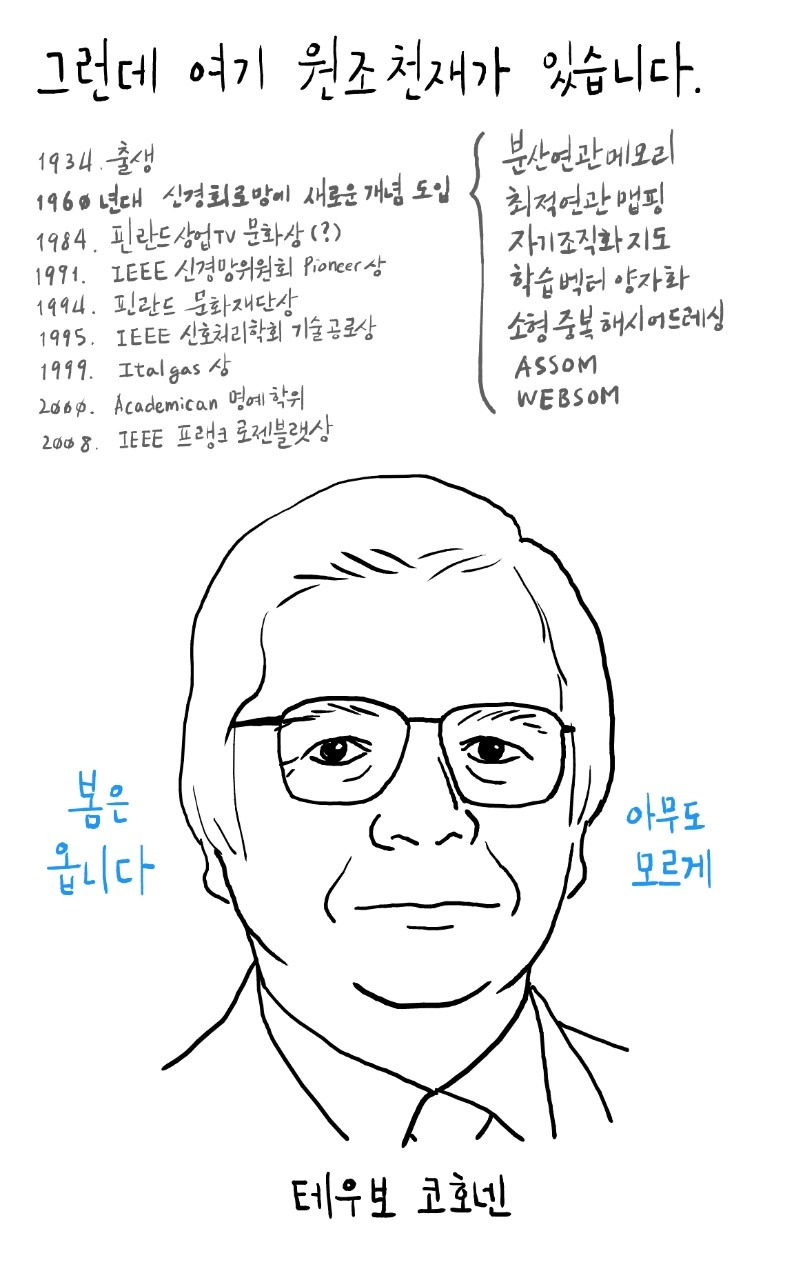 그런데 여기 원조천재가 있습니다.
1934. 출생
1960년대 신경회로망에 새로운 개념 도입
1984. 핀란드상업TV 문화상(?)
1991. IEEE 신경망위원회 Pioneer상
1994. 핀란드 문화재단상
1995. IEEE 신호처리학회 기술공로상
1999. Italgas 상
2000. Academican 명예학위
2008. IEEE 프랭크 로젠블랫상
분산연관메모리
최적연관 맵핑
자기조직화 지도
학습벡터 양자화
소형 중복 해시어드레싱
ASSOM
WEBSOM
봄은
옵니다
아무도
모르게
테우보 코호넨